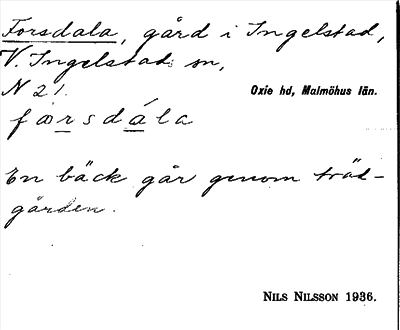 Forsdala, gård i Ingelstad,
V. Ingelstad sn,
N 21. Oxie hd, Malmöhus län.
færsdála
En bäck går genom träd-
gården.
NILS NILSSON 1936.